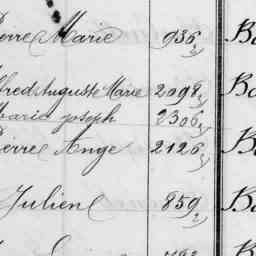 Pierre Marie 936
Alfred Auguste Marie 2098
Marie joseph 2306
Pierre Ange 2126
Julien 859